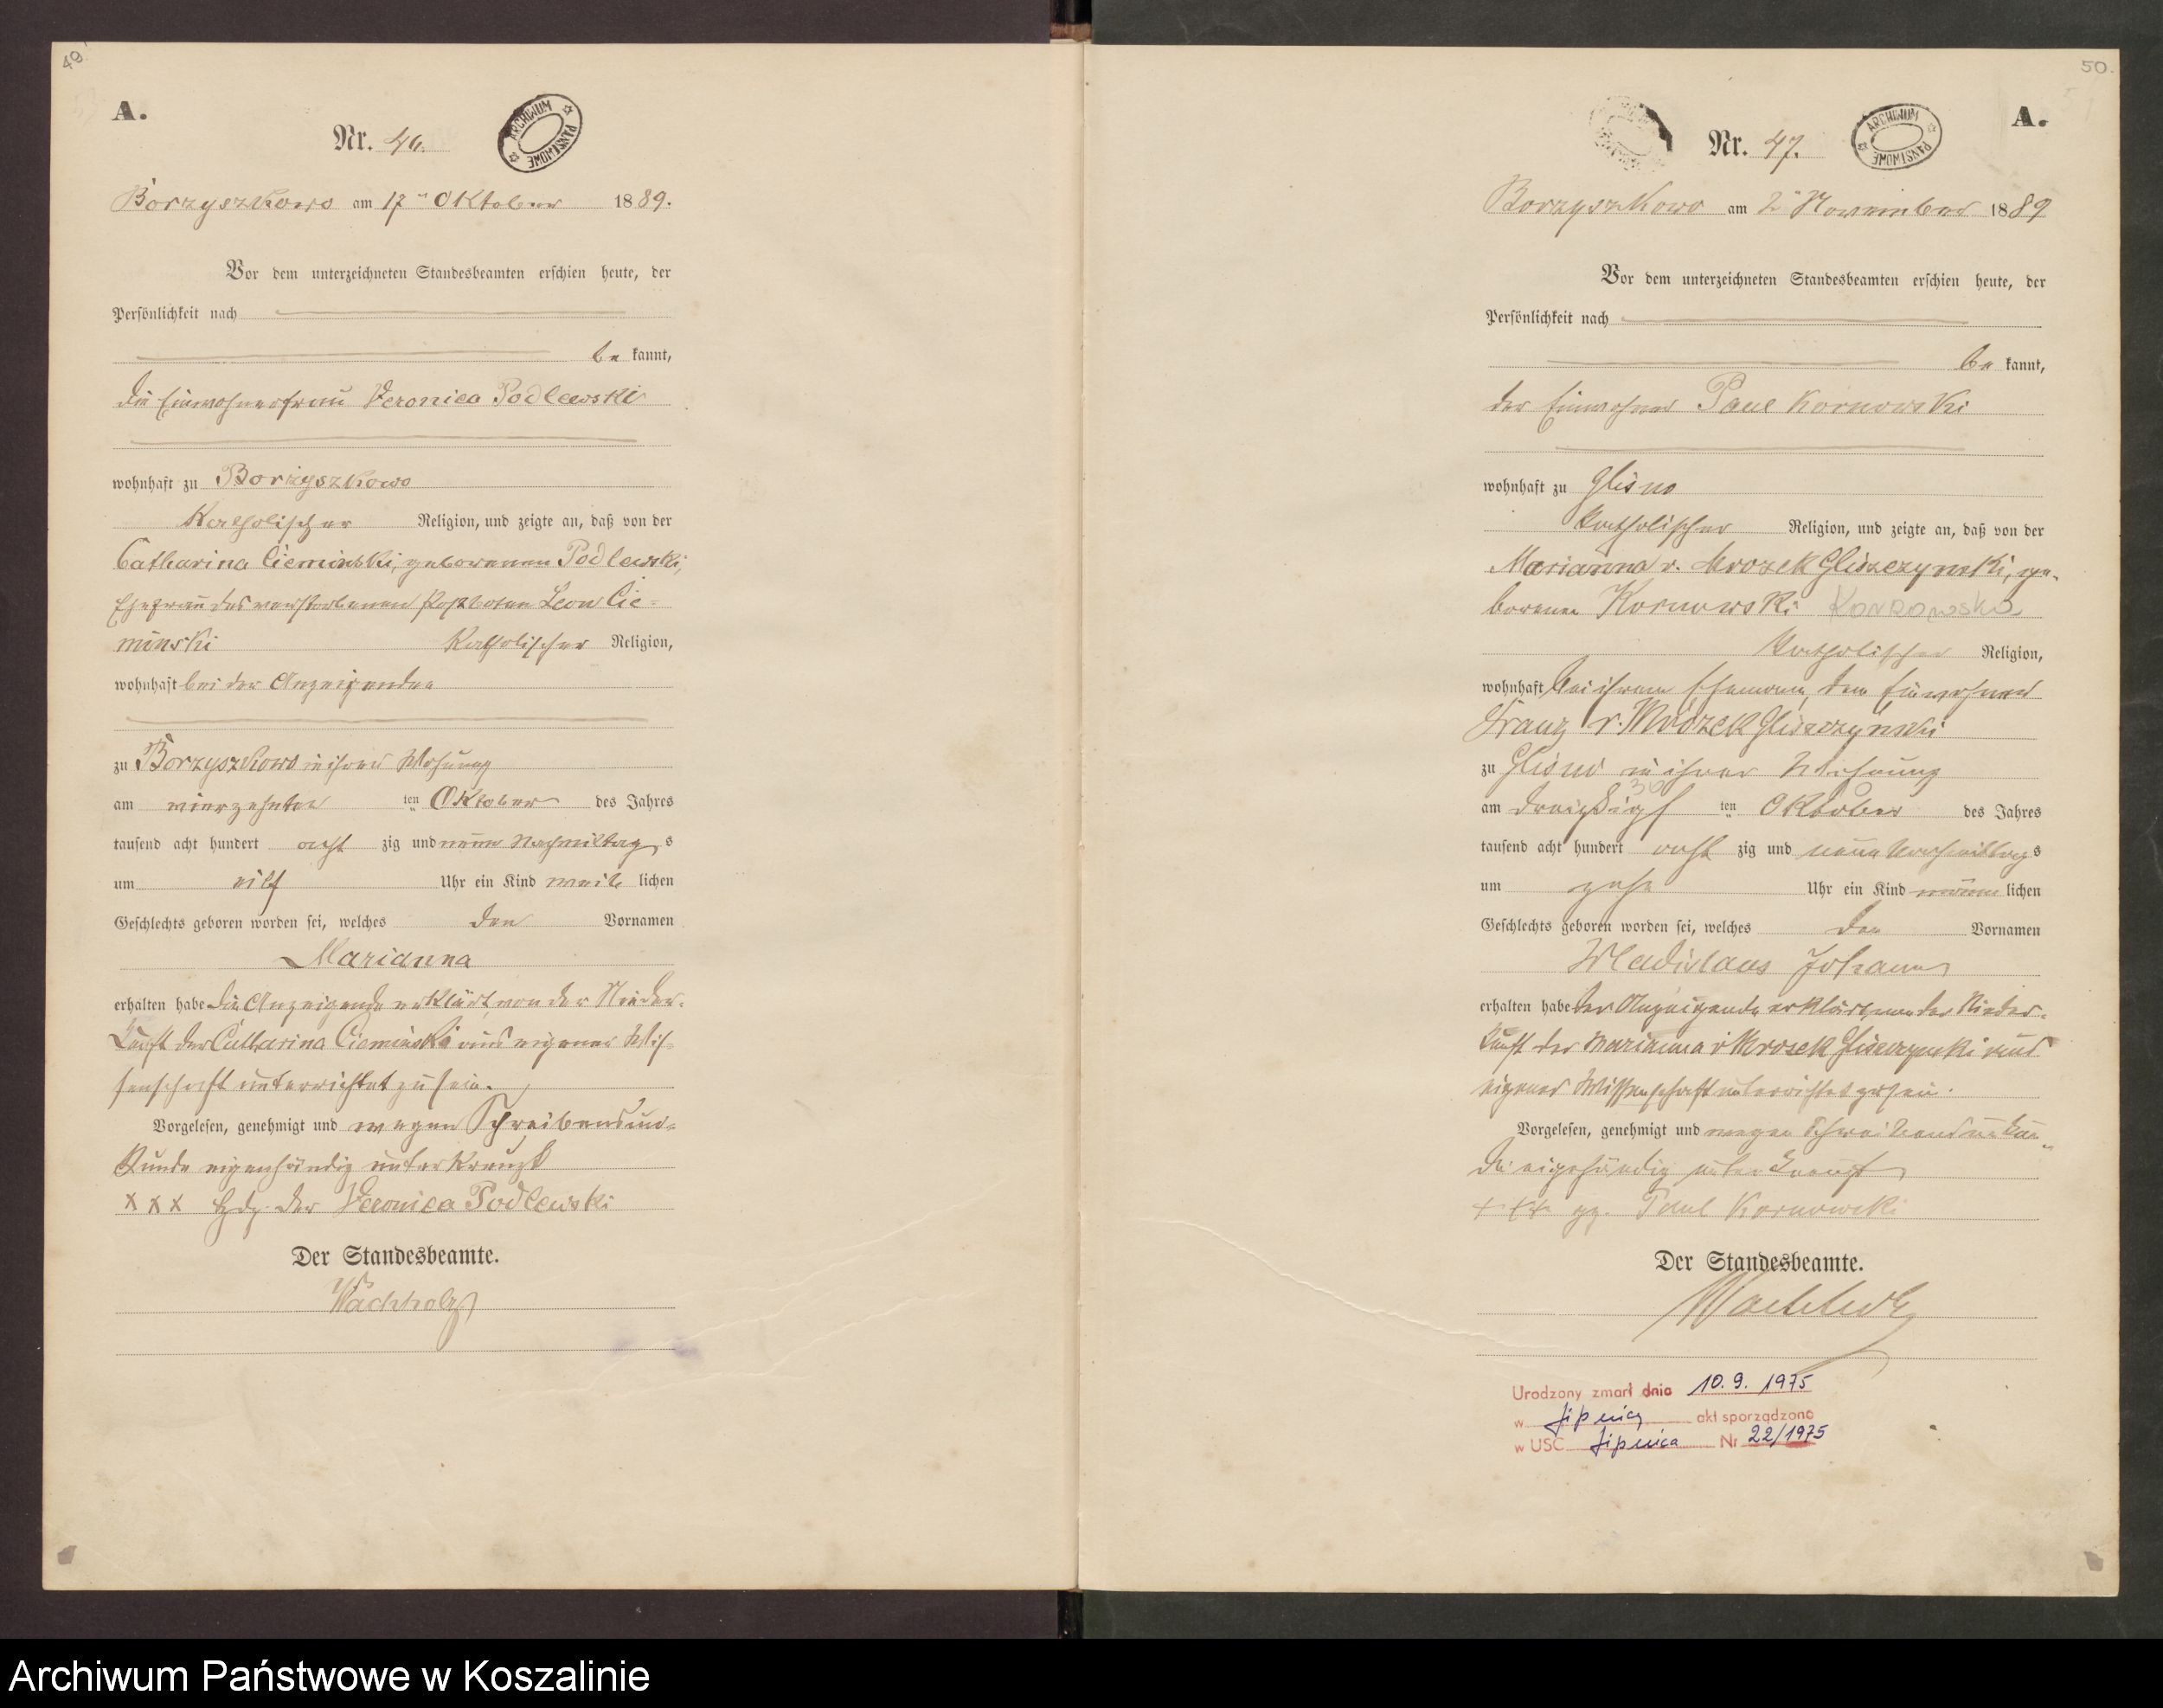 49.
A.
Nr. 46.
ARCHIWUM PAŃSTWOWE
Borzyszkowo am 17 ten Oktober 1889.
Vor dem unterzeichneten Standesbeamten erschien heute, der
Persönlichkeit nach
be kannt,
die Einwohnerfrau Veronica Podlewski
wohnhaft zu Borzyszkowo
Katholischer Religion, und zeigte an, daß von der
Catharina Cieminski, geborenen Podlewski,
Ehefrau des verstorbenen Postboten Leon Cie=
minski Katholischer Religion,
wohnhaft bei der Anzeigenden
zu Borzyszkowo in ihrer Wohnung
am vierzehnten ten Oktober des Jahres
tausend acht hundert acht zig und neun Nachmittag s
um eilf Uhr ein Kind weib lichen
Geschlechts geboren worden sei, welches den Vornamen
Marianna
erhalten habe die Anzeigende erklärt, von der Nieder=
kunft der Catharina Cieminski aus eigener Wis=
senschaft unterrichtet zu sein.
Vorgelesen, genehmigt und wegen Schreibensun=
kunde eigenhändig unterkreuzt
x x x Hdz. der Veronica Podlewski
Der Standesbeamte.
Wachholz
50.
A.
Nr. 47.
ARCHIWUM PAŃSTWOWE
Borzyszkowo am 2 November 1889
Vor dem unterzeichneten Standesbeamten erschien heute, der
Persönlichkeit nach
be kannt,
der Einwohner Paul Kornowski
wohnhaft zu Glisno
Katholischer Religion, und zeigte an, daß von der
Marianna v. Mrozek Gliszczynski, ge=
borenen Kornowski
Katholischer Religion,
wohnhaft bei ihrem Ehemann, dem Einwohner
Franz v. Mrozek Gliszczynski
zu Glisno in ihrer Wohnung
30
am dreißigst ten Oktober des Jahres
tausend acht hundert acht zig und neun Nachmittag s
um zehn Uhr ein Kind männ lichen
Geschlechts geboren worden sei, welches den Vornamen
Wladislaus Johann
erhalten habe der Anzeigende erklärt, von der Nieder=
kunft der Marianna v Mrozek Gliszczynski aus
eigener Wissenschaft unterrichtet zu sein.
Vorgelesen, genehmigt und wegen Schreibensunkun=
de eigenhändig unterkreuzt
+++ gz. Paul Kornowski
Der Standesbeamte.
Wachholz
Urodzony zmarł dnia 10.9.1975
w Lipnicy akt sporządzono
w USC Lipnica Nr 22/1975
Archiwum Państwowe w Koszalinie